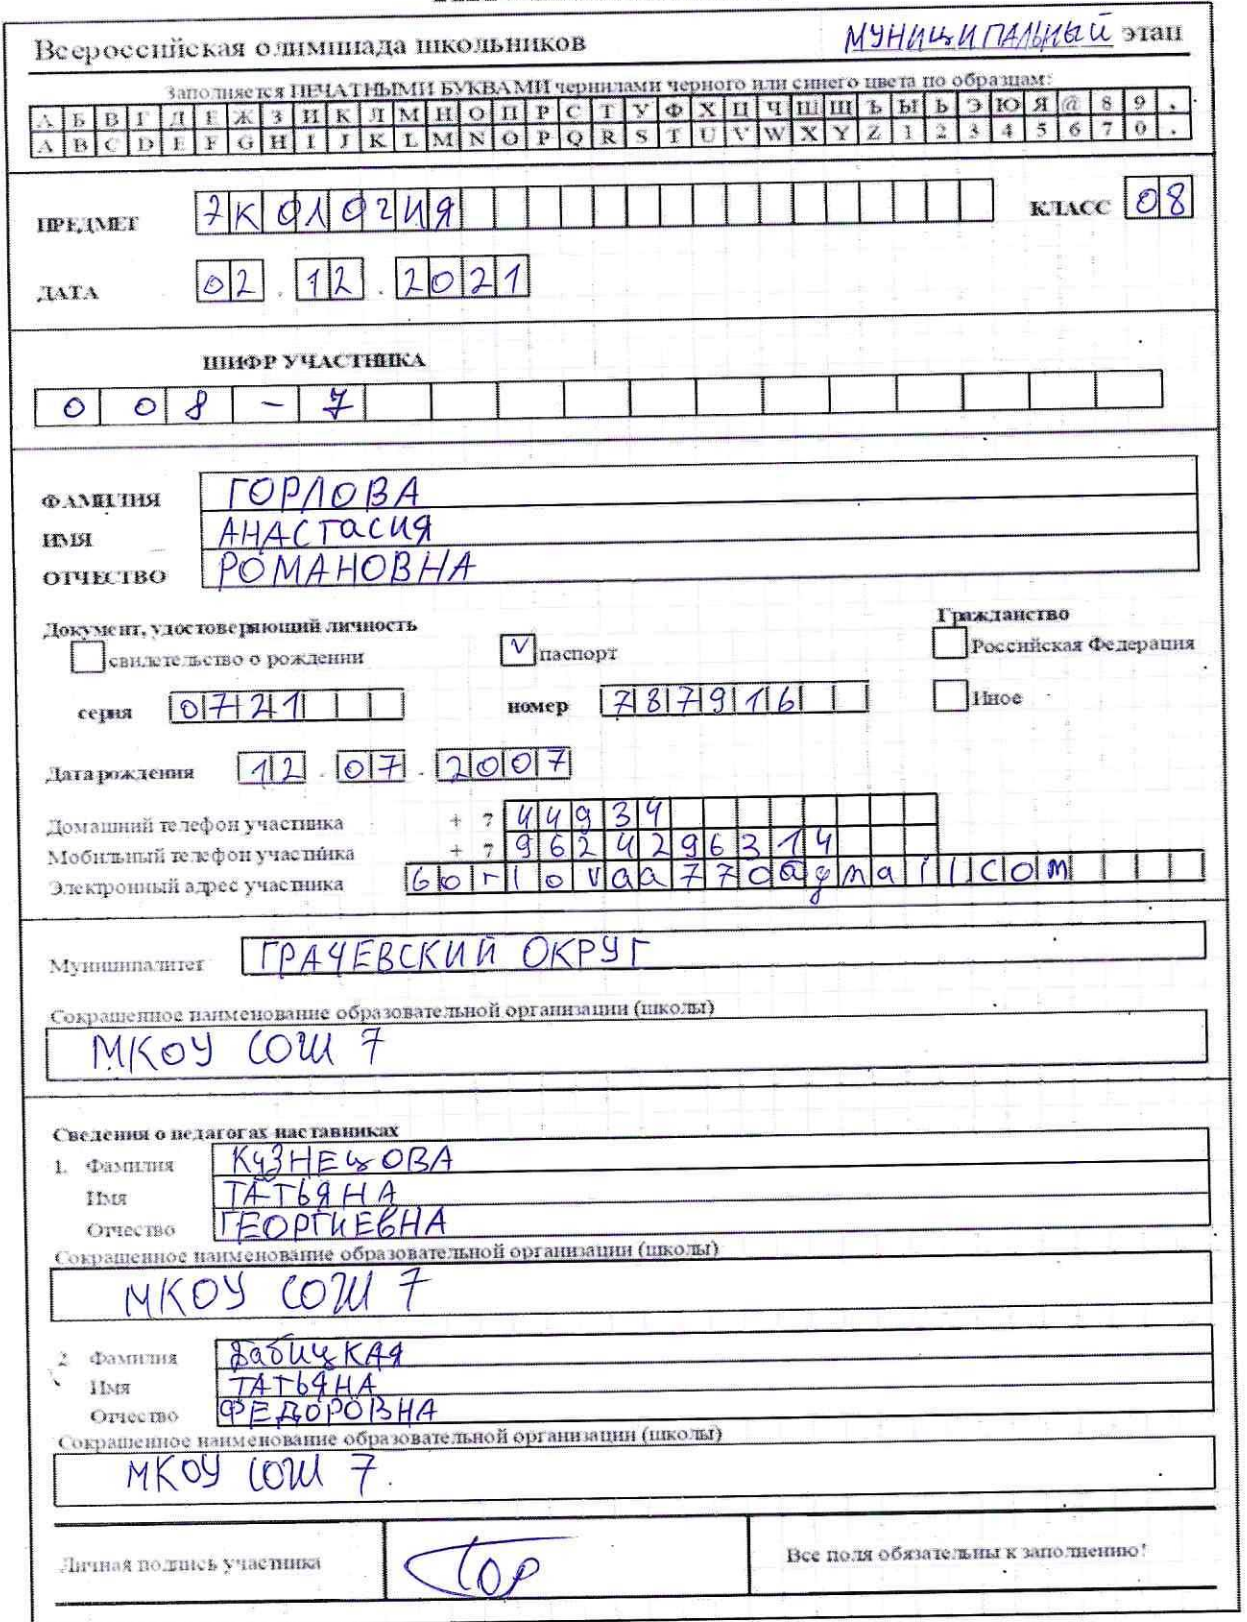 Всероссийская олимпиада школьников МУНИЦИПАЛЬНЫЙ этап
Заполняется ПЕЧАТНЫМИ БУКВАМИ чернилами черного или синего цвета по образцам:
А Б В Г Д Е Ж З И К Л М Н О П Р С Т У Ф Х Ц Ч Ш Щ Ъ Ы Ь Э Ю Я @ 8 9 ,
A B C D E F G H I J K L M N O P Q R S T U V W X Y Z 1 2 3 4 5 6 7 0 .
ПРЕДМЕТ ЭКОЛОГИЯ КЛАСС 08
ДАТА 02.12.2021
ШИФР УЧАСТНИКА
008-7
ФАМИЛИЯ ГОРЛОВА
ИМЯ АНАСТасия
ОТЧЕСТВО РОМАНОВНА
Документ, удостоверяющий личность Гражданство
свидетельство о рождении V паспорт Российская Федерация
серия 0721 номер 787916 Иное
Дата рождения 12.07.2007
Домашний телефон участника + 7 44934
Мобильный телефон участника + 7 9624296314
Электронный адрес участника Gorlovaa770@gmailcom
Муниципалитет ГРАЧЕВСКИЙ ОКРУГ
Сокращенное наименование образовательной организации (школы)
МКОУ СОШ 7
Сведения о педагогах наставниках
1. Фамилия КУЗНЕЦОВА
Имя ТАТЬЯНА
Отчество ГЕОРГИЕВНА
Сокращенное наименование образовательной организации (школы)
МКОУ СОШ 7
2 Фамилия БабицКАЯ
Имя ТАТЬЯНА
Отчество ФЕДОРОВНА
Сокращенное наименование образовательной организации (школы)
МКОУ СОШ 7.
Личная подпись участника Гор Все поля обязательны к заполнению!